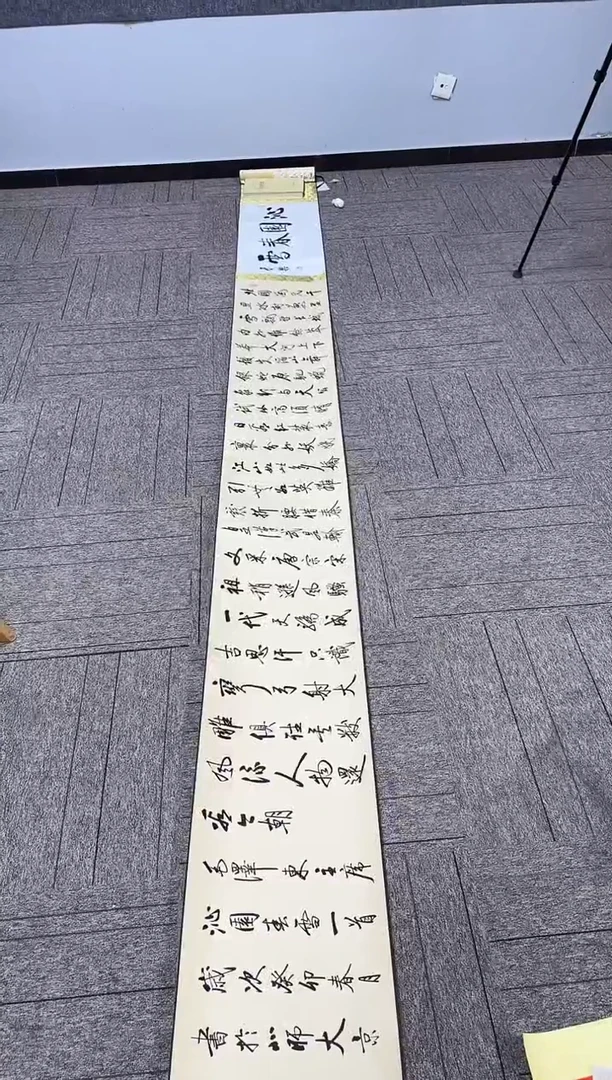 沁園春雪
北國風光千
里冰封萬里
雪飄望長城
內外惟餘莽
莽大河上下
頓失滔山舞
銀蛇原馳蠟
象欲與天公
試比高須晴
日看紅裝素
裹分外妖嬈
江山如此多嬌
引無數英雄
競折腰惜秦
皇漢武略輸
文采唐宗宋
祖稍遜風騷
一代天驕成
吉思汗只識
彎弓射大
雕俱往矣數
風流人物還
看今朝
毛澤東主席
沁園春雪一首
歲次癸卯春月
書於北師大京